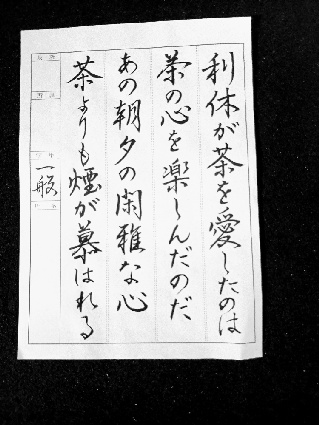 利休が茶を愛したのは
茶の心を楽しんだのだ
あの朝夕の閑雅な心
茶よりも煙が慕はれる
一般